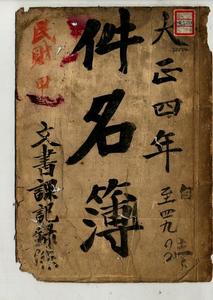 大正四年
自
至四九
件名簿
民財甲
文書課記録係